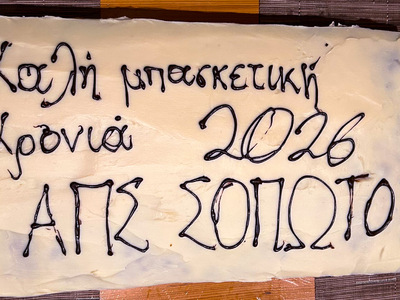 Καλή μπασκετική
Χρονιά 2026
ΑΠΣ ΣΟΠΩΤΟ